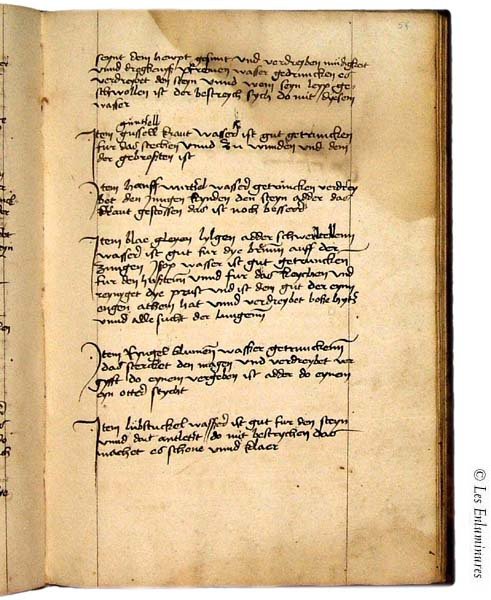 58
seynt dem hewpt gesunt und verdreyben mudigkeit
vnnd kregkenß kremen wasser gedruncken es
verdreybet den steyn vnnd wem seyn leyp ge-
schwollen ist der bestreych sych do mit diesem
wasser
günthell
Item gunsell kraut wasser ist gut getruncken
fur das stechen vnnd zu wunden und dem
der gebrosten ist
Item hanff wurtzel wasser getruncken verdrey
bet den Jungen kynden den steyn adder das
kraut gestossen das ist noch besser
Item blae gleyen lylgen adder schwertellenn
wasser ist gut fur dye brunn auff der
zungen Isop wasser ist gut getruncken
fur den hustenn vnnd fur das keychen und
reyniget dye prust und ist dem gut der eyn
engen athem hat vnnd verdreybet bose hytz
vnnd alle sucht der lungenn
Item Ryngel blumenn wasser getrunckenn
das stercket den magen und verdreybet ver
gyfft do eynem vergeben ist adder do eynem
eyn otter stycht
Item lubstuckel wasser ist gut fur den steyn
vnnd das antlitz do mit bestrychen das
machet es schone vnnd klaer
© Les Enluminures